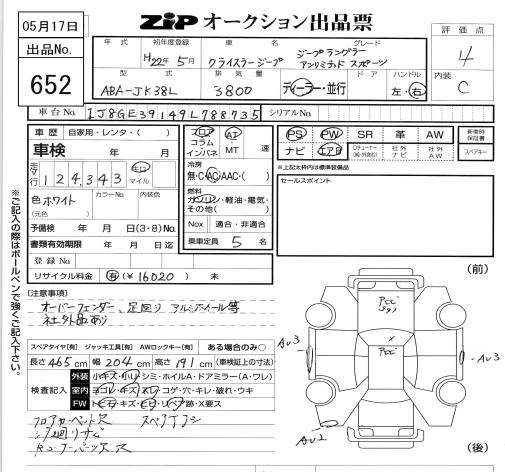 05月17日
出品No.
652
ZIP オークション出品票
評価点
4
内装
C
年式 初年度登録 車名 グレード
H22年5月 クライスラージープ ジープラングラー
アンリミテッド スポーツ
型式 排気量 ドア ハンドル
ABA-JK38L 3800 ディーラー・並行 左・右
車台No. 1J8GE39149L788735 シリアルNo.
車歴 自家用・レンタ・( )
車検 年 月
走行 124,343 キロ マイル
色 ホワイト カラーNo. 内装色
(元色)
予備検 年 月 日(3・8)No.
書類有効期限 年 月 日迄
登録No.
リサイクル料金 有 (¥ 16020 ) 未
フロア AT
コラム
インパネ MT 速
冷房
無・C・AC・AAC・( )
燃料
ガソリン・軽油・電気・
その他( )
Nox 適合・非適合
乗車定員 5 名
PS PW SR 革 AW 新車時保証書
ナビ エアB 社外ナビ 社外AW スペアキー
※上記太枠内は標準装備品
セールスポイント
※ご記入の際はボールペンで強くご記入下さい。
[注意事項]
オーバーフェンダー、足回り アルミホイール等
社外品あり
スペアタイヤ[有] ジャッキ工具[有] AWロックキー[有] ある場合のみ○
長さ 465 cm 幅 204 cm 高さ 191 cm (車検証上の寸法)
検査記入
外装 小キズ・小U シミ・ホイルA・ドアミラー(A・ワレ)
室内 ヨゴレ・キズ・スレ・コゲ・穴・キレ・破れ・ウキ
FW トビ石・キズ・ヒビ・リペア跡・X要ス
フロアカーペット穴 スペアTナシ
下廻りサビ
(前)
(後)
AU3
AU3
AU2
X